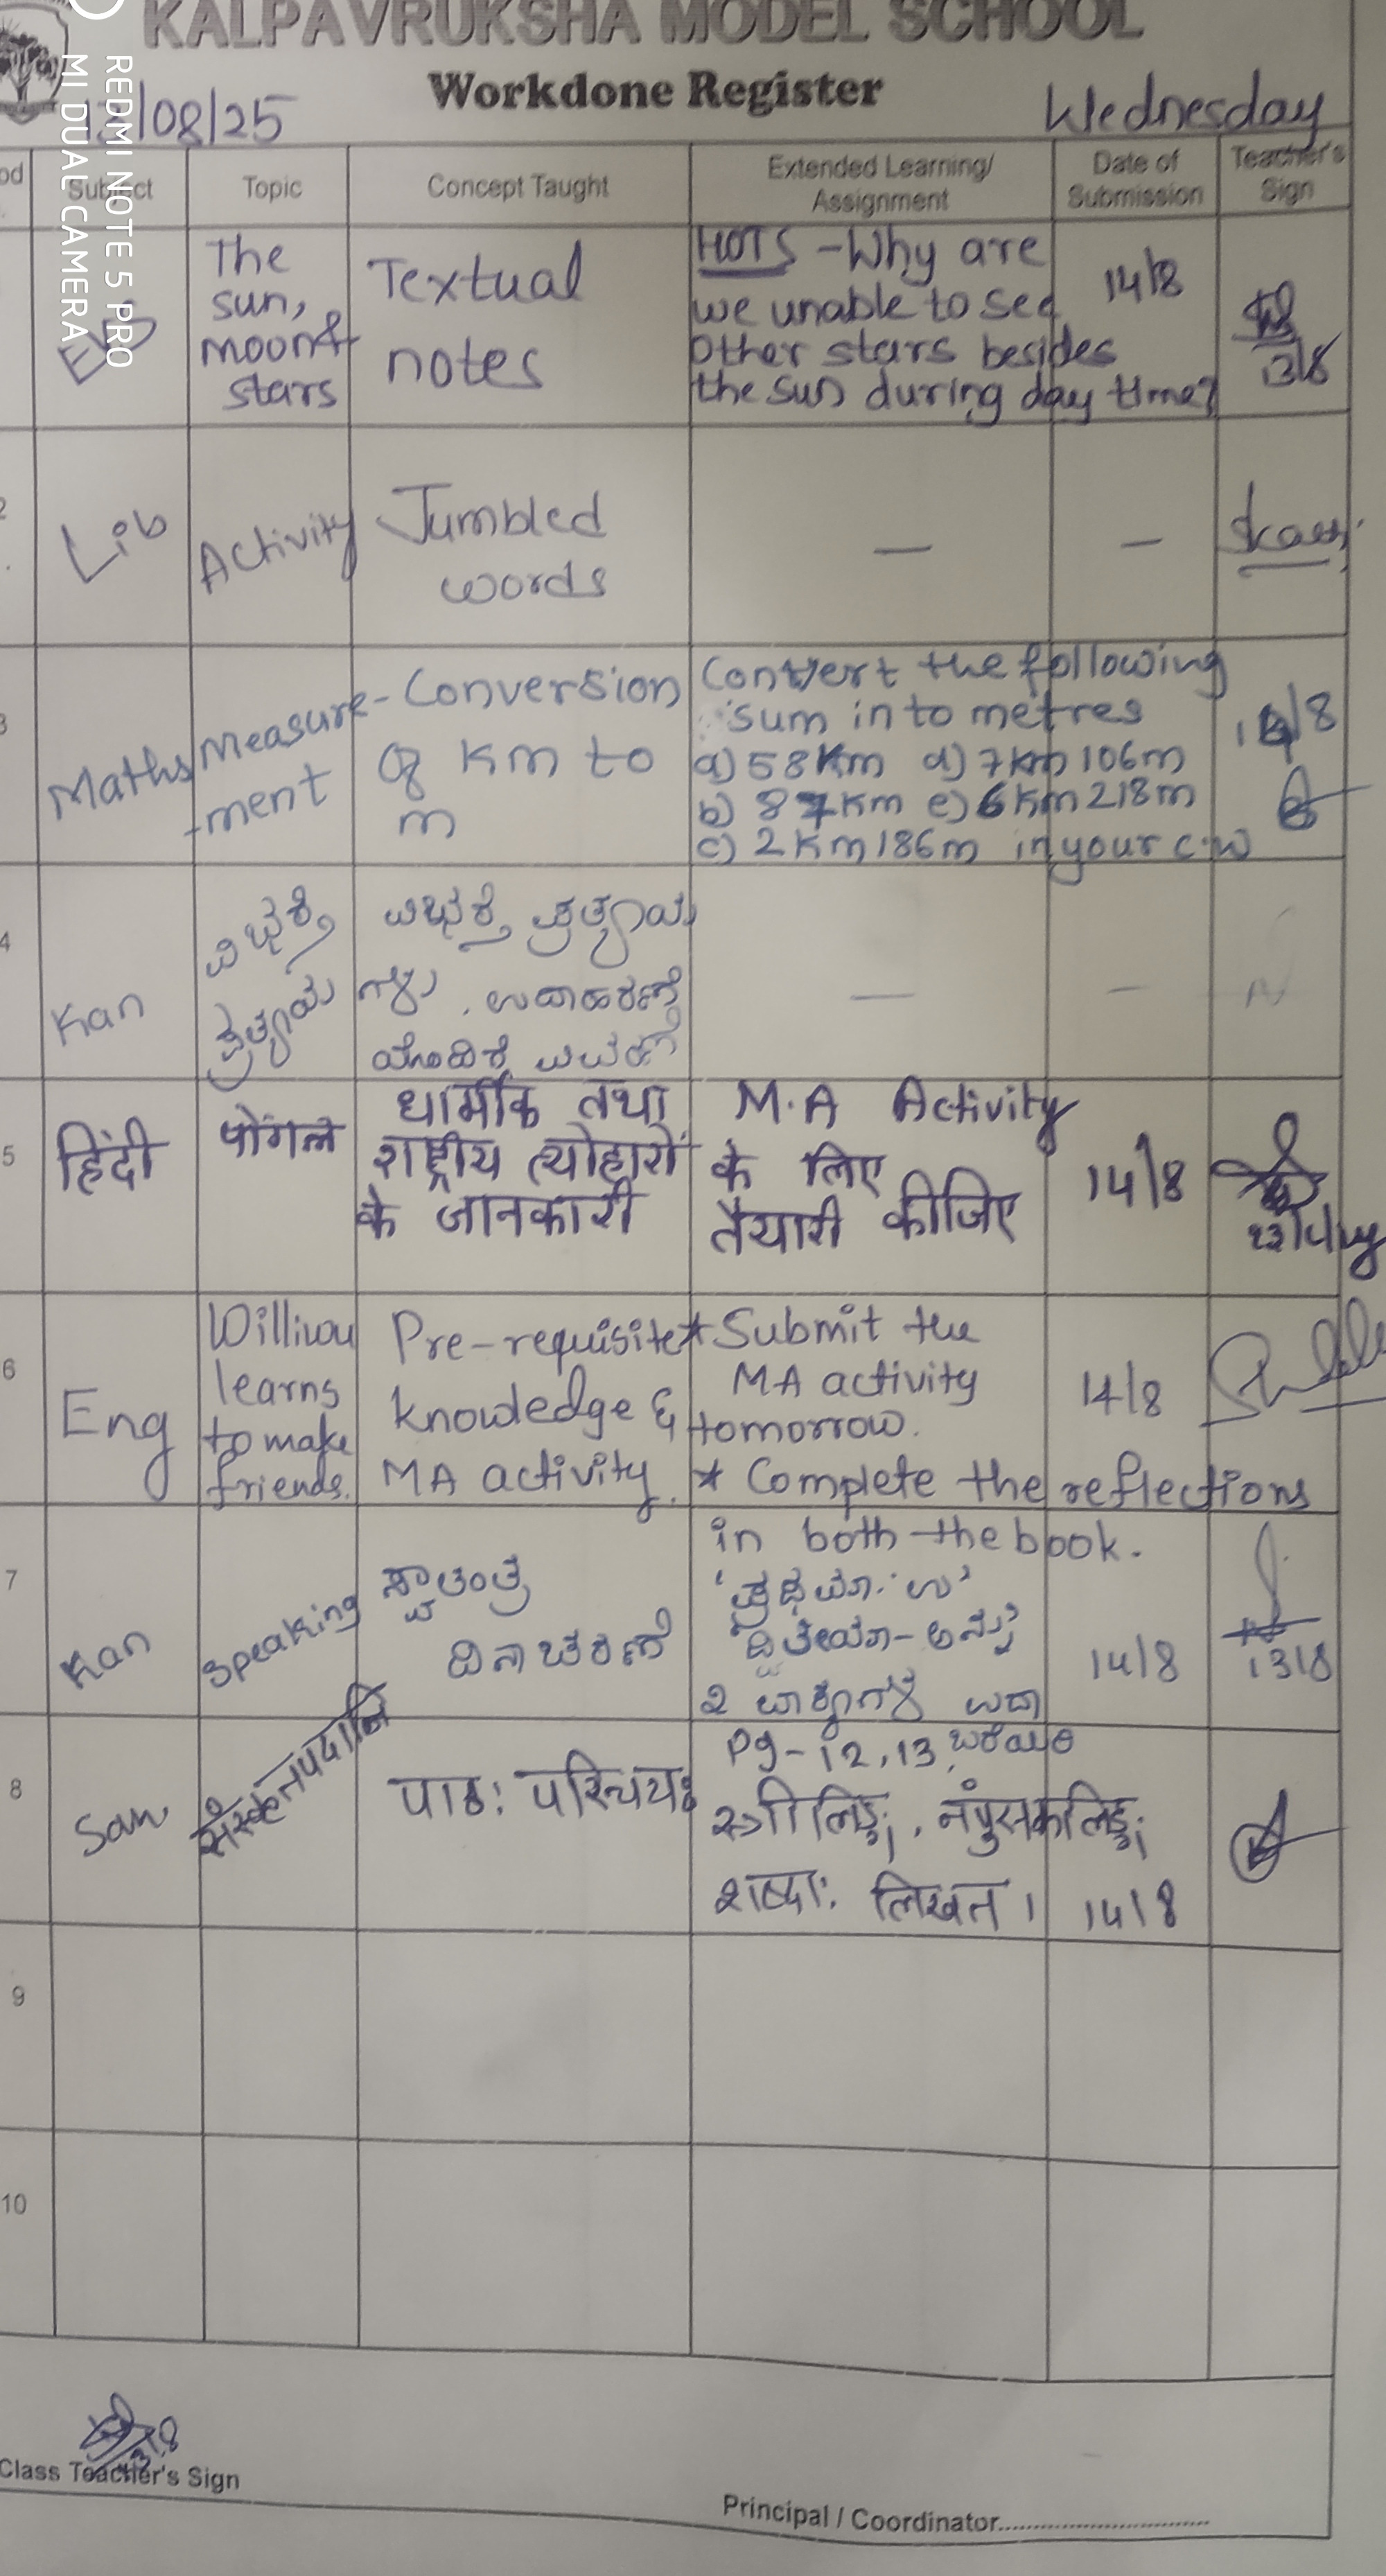 KALPAVRUKSHA MODEL SCHOOL
Workdone Register
/08/25 Wednesday
Subject Topic Concept Taught Extended Learning/ Assignment Date of Submission Teacher's Sign
The sun, moon & stars
Textual notes
HOTS - Why are
we unable to see
other stars besides
the sun during day time?
14/8
13/8
2
Lib
Activity
Jumbled
words
—
—
3
Maths
Measure-
-ment
Conversion
of Km to
m
Convert the following
sum in to metres
a) 58Km d) 7km 106m
b) 87Km e) 6Km 218m
c) 2Km 186m in your c.w
14/8
4
Kan
ವಿಭಕ್ತಿ
ಪ್ರತ್ಯಯ
ವಿಭಕ್ತಿ ಪ್ರತ್ಯಯ
ಗಳು. ಉದಾಹರಣೆ
ಯೊಂದಿಗೆ ವಿವರಣೆ
—
—
5
हिंदी
पोंगल
धार्मीक तथा
राष्ट्रीय त्योहारों
के जानकारी
M.A Activity
के लिए
तैयारी कीजिए
14/8
6
Eng
learns
to make
friends.
Pre-requisite
knowledge &
MA activity.
* Submit the
MA activity
tomorrow.
* Complete the reflections
in both the book.
14/8
7
Kan
Speaking
ಸ್ವಾತಂತ್ರ
ದಿನಾಚರಣೆ
2 ವಾಕ್ಯಗಳ
14/8
13/8
8
San
संस्कृतपदानि
पाठः परिचयः
Pg-12,13, ಬರೆಯಿರಿ
स्त्रीलिङ्ग, नपुंसकलिङ्ग
शब्दाः लिखत।
14/8
9
10
13/8
Class Teacher's Sign
Principal / Coordinator
REDMI NOTE 5 PRO
MI DUAL CAMERA